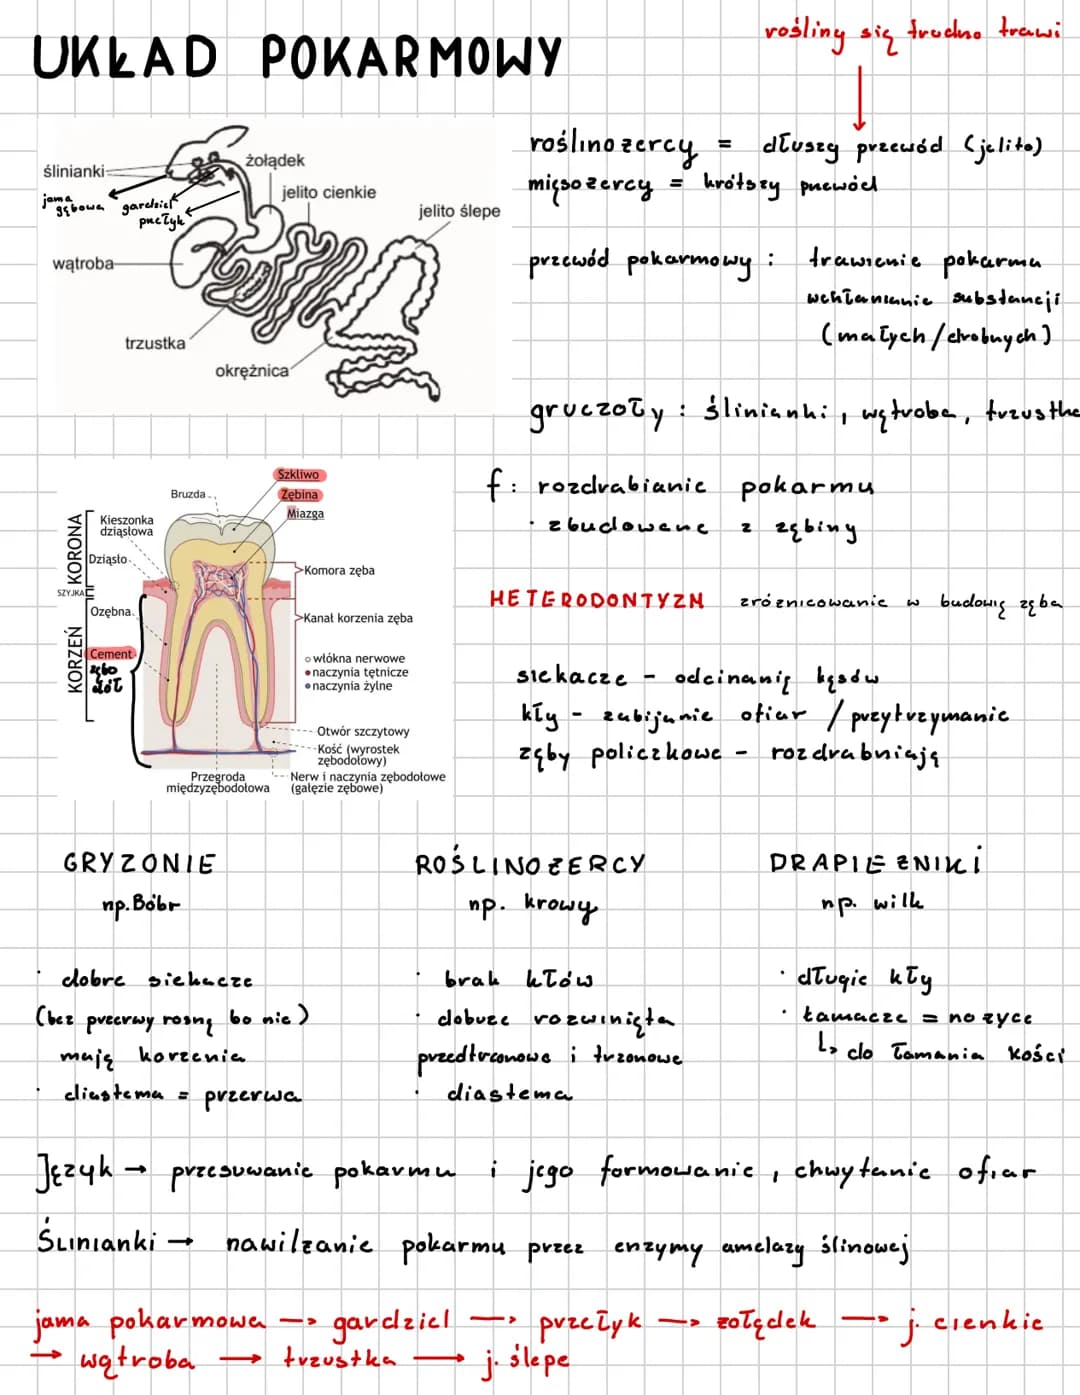 rośliny się trudno trawi
UKŁAD POKARMOWY
roślinożercy = dłuszy przewód (jelito)
mięsożercy = krótszy przewód
ślinianki
żołądek
jelito cienkie
jelito ślepe
jama gębowa
gardziel
przełyk
wątroba
trzustka
okrężnica
przewód pokarmowy : trawienie pokarmu
wchłanianie substancji
(małych/drobnych)
gruczoły : ślinianki, wątroba, trzustka
f: rozdrabianie pokarmu
· zbudowane z zębiny
Szkliwo
Zębina
Miazga
Bruzda
Kieszonka
dziąsłowa
Dziąsło
KORONA
SZYJKA
KORZEŃ
Ozębna
Cement
zębo
dół
Komora zęba
Kanał korzenia zęba
włókna nerwowe
naczynia tętnicze
naczynia żylne
Otwór szczytowy
Kość (wyrostek
zębodołowy)
Nerw i naczynia zębodołowe
(gałęzie zębowe)
Przegroda
międzyzębodołowa
HETERODONTYZM zróżnicowanie w budowię zęba
siekacze - odcinanię kęsów
kły - zabijanie ofiar / przytrzymanie
zęby policzkowe - rozdrabniają
GRYZONIE
np. Bóbr
· dobre siekacze
(bez przerwy rosną bo nie)
mają korzenia
· diastema = przerwa
ROŚLINOŻERCY
np. krowy
· brak kłów
· dobuze rozwinięta
przedtrzonowe i trzonowe
· diastema
DRAPIEŻNIKI
np. wilk
· długie kły
· łamacze = nożyce
↳ do łamania kości
Język → przesuwanie pokarmu i jego formowanie, chwytanie ofiar
Ślinianki → nawilżanie pokarmu przez enzymy amelazy ślinowej
jama pokarmowa → gardziel → przełyk → żołądek → j. cienkie
→ wątroba → trzustka → j. ślepe